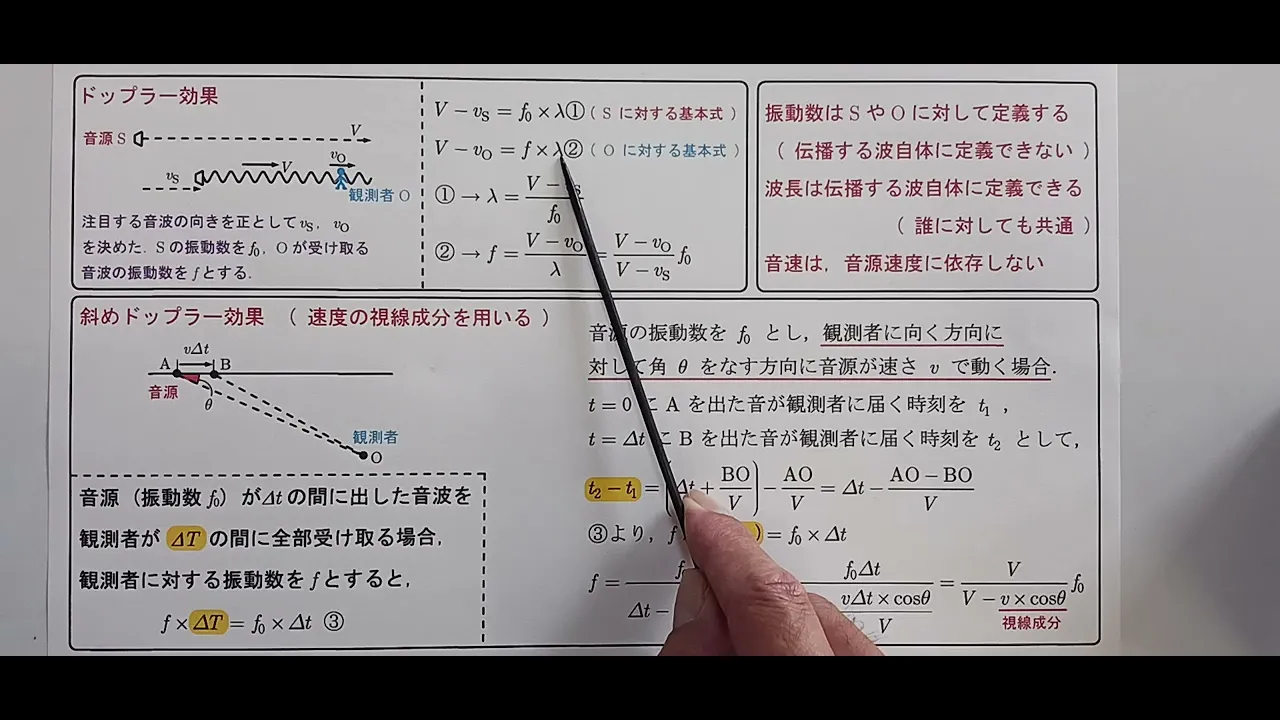 ドップラー効果
音源 S
V
v_S
V
v_O
観測者 O
注目する音波の向きを正として v_S, v_O
を決めた. S の振動数を f_0, O が受け取る
音波の振動数を f とする.
V − v_S = f_0 × λ ① ( S に対する基本式 )
V − v_O = f × λ ② ( O に対する基本式 )
① → λ = (V − v_S) / f_0
② → f = (V − v_O) / λ = (V − v_O) / (V − v_S) f_0
振動数は S や O に対して定義する
( 伝播する波自体に定義できない )
波長は伝播する波自体に定義できる
( 誰に対しても共通 )
音速は, 音源速度に依存しない
斜めドップラー効果 ( 速度の視線成分を用いる )
vΔt
A B
音源
θ
観測者
O
音源(振動数 f_0)が Δt の間に出した音波を
観測者が ΔT の間に全部受け取る場合,
観測者に対する振動数を f とすると,
f × ΔT = f_0 × Δt ③
音源の振動数を f_0 とし, 観測者に向く方向に
対して角 θ をなす方向に音源が速さ v で動く場合.
t = 0 に A を出た音が観測者に届く時刻を t_1 ,
t = Δt に B を出た音が観測者に届く時刻を t_2 として,
t_2 − t_1 = (Δt + BO / V) − AO / V = Δt − (AO − BO) / V
③より, f ) = f_0 × Δt
f = f / Δt − f_0Δt / vΔt × cosθ / V = V / (V − v × cosθ) f_0
視線成分